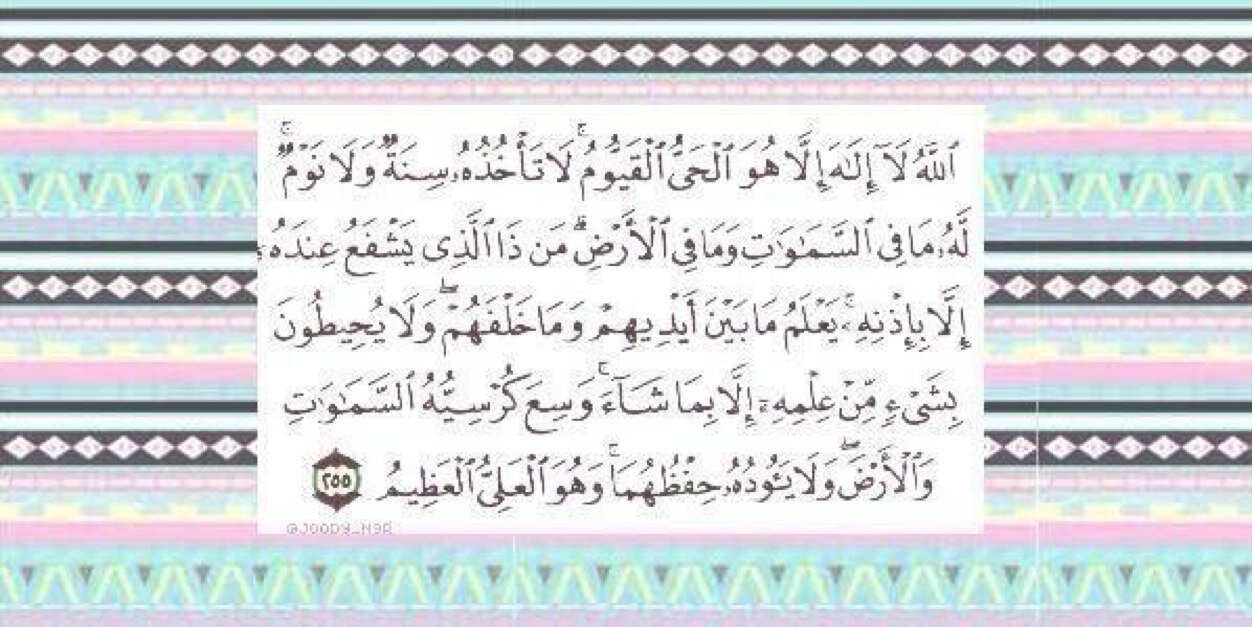 ٱللَّهُ لَآ إِلَٰهَ إِلَّا هُوَ ٱلْحَىُّ ٱلْقَيُّومُ ۚ لَا تَأْخُذُهُۥ سِنَةٌ وَلَا نَوْمٌ ۚ
لَّهُۥ مَا فِى ٱلسَّمَٰوَٰتِ وَمَا فِى ٱلْأَرْضِ ۗ مَن ذَا ٱلَّذِى يَشْفَعُ عِندَهُۥٓ
إِلَّا بِإِذْنِهِۦ ۚ يَعْلَمُ مَا بَيْنَ أَيْدِيهِمْ وَمَا خَلْفَهُمْ ۖ وَلَا يُحِيطُونَ
بِشَىْءٍ مِّنْ عِلْمِهِۦٓ إِلَّا بِمَا شَآءَ ۚ وَسِعَ كُرْسِيُّهُ ٱلسَّمَٰوَٰتِ
وَٱلْأَرْضَ ۖ وَلَا يَـُٔودُهُۥ حِفْظُهُمَا ۚ وَهُوَ ٱلْعَلِىُّ ٱلْعَظِيمُ ٢٥٥